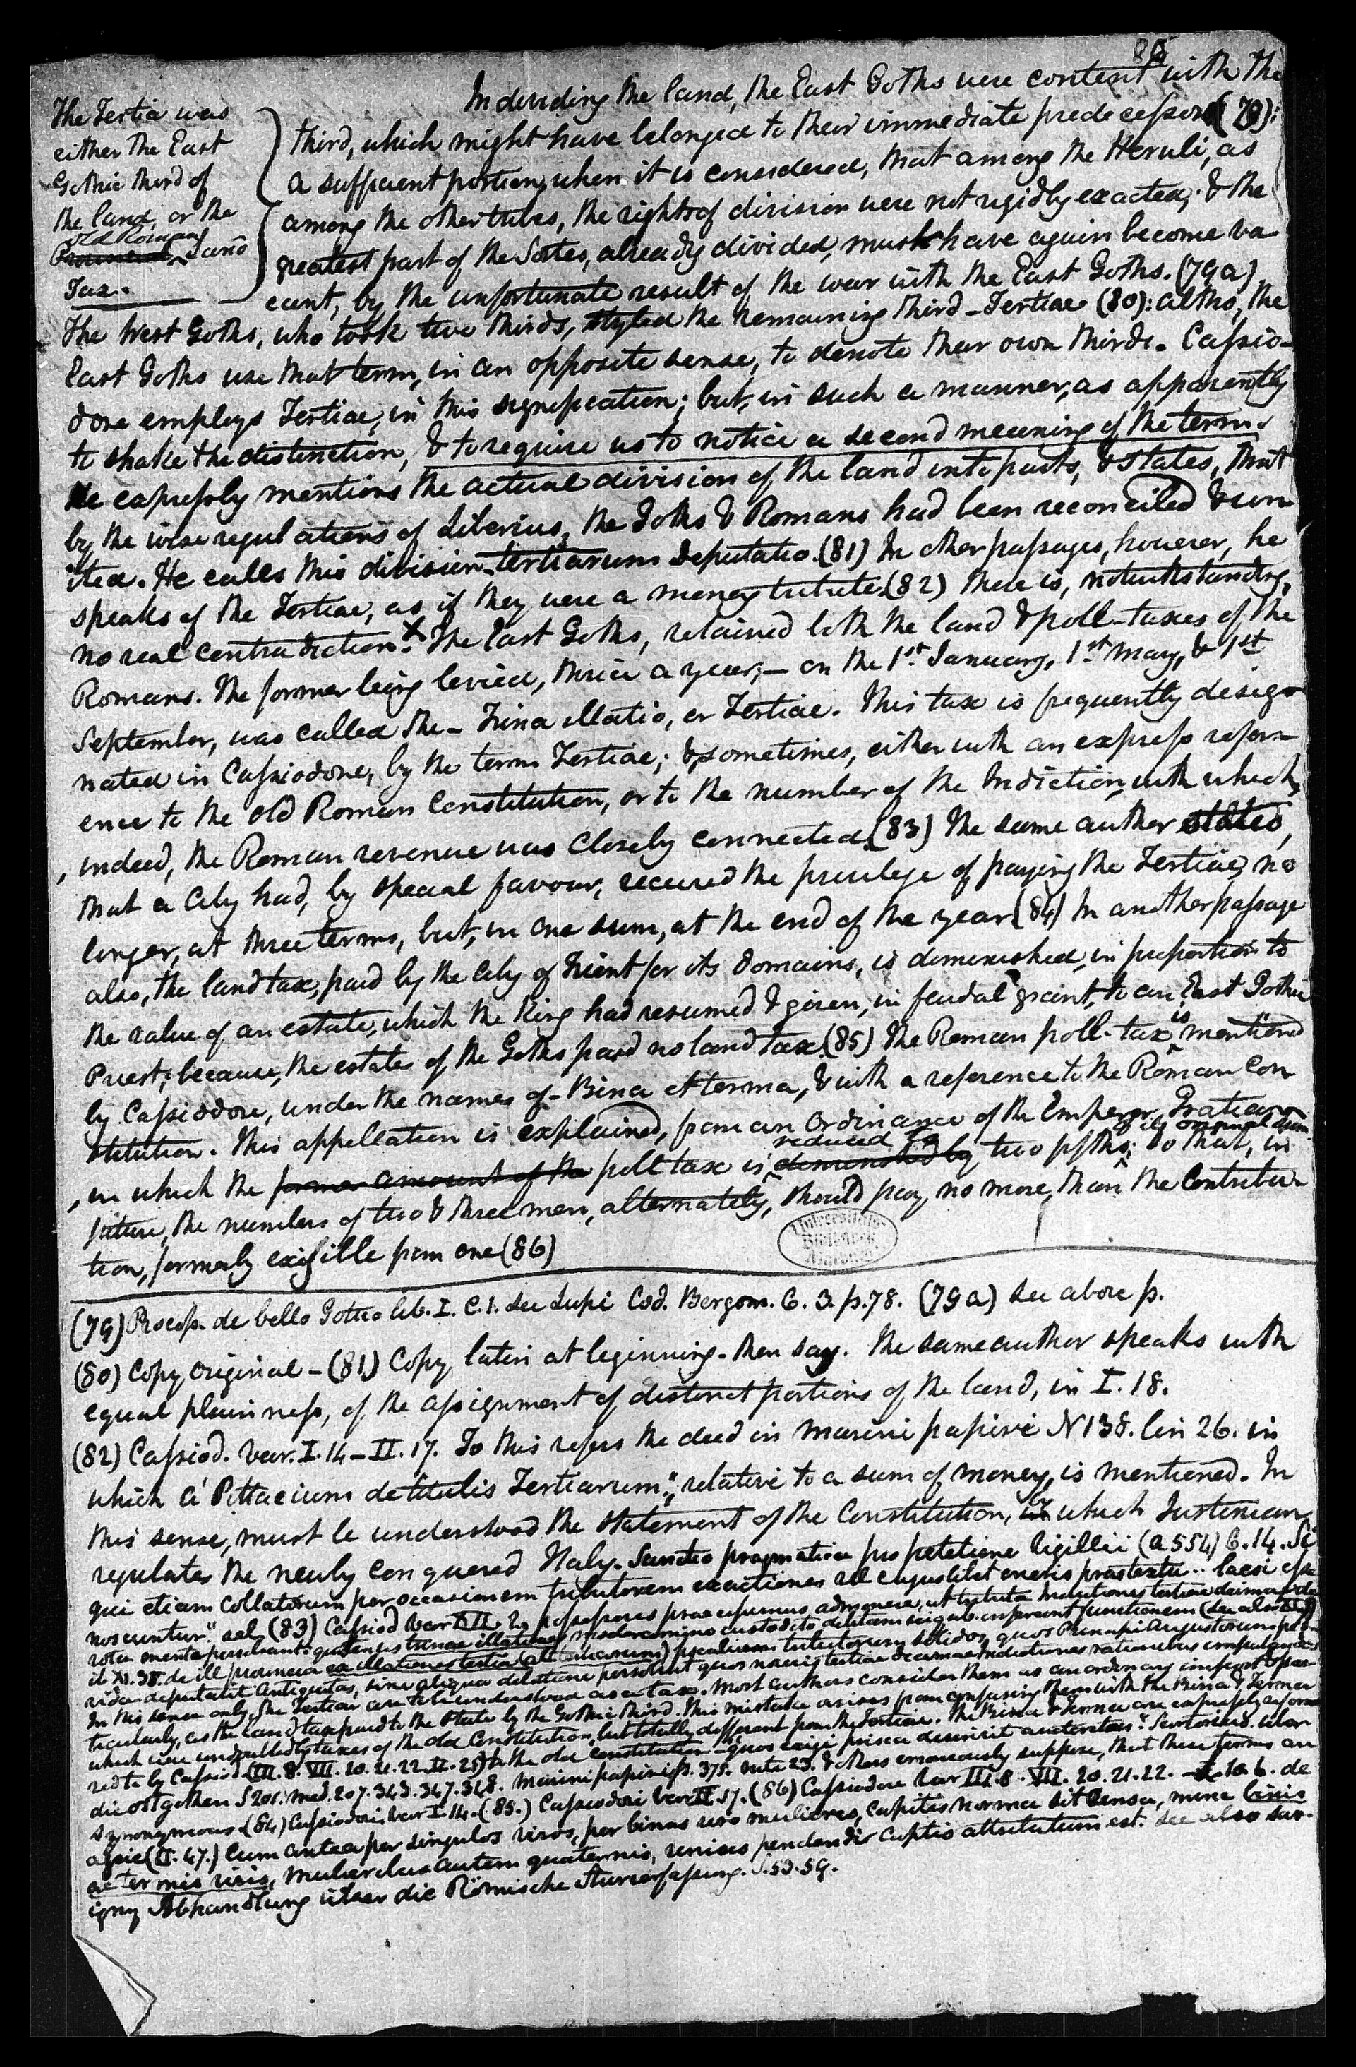 85
In dividing the land, the East Goths were content with the
third, which might have belonged to their immediate predecessors (79):
a sufficient portion, when it is considered, that among the Heruli, as
among the other tribes, the rights of division were not rigidly exacted; & the
greatest part of the Sortes, already divided, must have again become va
cant, by the unfortunate result of the war with the East Goths. (79a)
The Tertia was
either the East
Gothic third of
the land, or the
old Roman
Provincial Land
Tax.
The West Goths, who took two thirds, styled the remaining third - Tertiae (80): altho', the
East Goths use that term, in an opposite sense, to denote their own thirds. Cassio-
dore employs Tertiae, in this signification; but, in such a manner, as apparently
to shake the distinction, & to require us to notice a second meaning of the term.
He expressly mentions the actual division of the land into parts, & states, that
by the wise regulations of Liberius, the Goths & Romans had been reconciled & un
ited. He calls this division - tertiarum deputatio. (81) In other passages, however, he
speaks of the Tertiae, as if they were a money tribute. (82) There is, notwithstanding,
no real contradiction. X The East Goths, retained both the land & poll-taxes of the
Romans. The former being levied, thrice a year, - on the 1st. January, 1st. May, & 1st
September, was called the - Trina illatio, or Tertiae. This tax is frequently desig
nated in Cassiodore, by the term Tertiae; & sometimes, either with an express refer-
ence to the old Roman Constitution, or to the number of the Indiction, with which,
, indeed, the Roman revenue was closely connected. (83) The same author states,
that a City had, by special favour, secured the privilege of paying the Tertiae, no
longer, at three terms, but, in one sum, at the end of the year. (84) In another passage
also, the land tax, paid by the City of Trient for its domains, is diminished, in proportion to
the value of an estate, which the King had resumed & given, in feudal grant, to an East Gothic
Priest; because, the estates of the Goths paid no land tax. (85) The Roman poll-tax is mentioned
by Cassiodore, under the names of - Bina et terna, & with a reference to the Roman Con
stitution. This appellation is explained, from an ordinance of the Emperor Gratian
, in which the former amount of the poll tax is diminished by reduced to two fifths of its original; so that, in
future, the numbers of two & three men, alternately, should pay, no more, than the Contribu-
tion, formerly exigible from one (86)
(79) Procop. de bello Gothico lib. I. C. 1. See Lupi Cod. Bergom. C. 3. p. 78. (79a) See above p.
(80) Copy original - (81) Copy latin at beginning - then say. The same author speaks with
equal plainness, of the assignment of distinct portions of the land, in I. 18.
(82) Cassiod. Var. I. 14 - II. 17. To this refers the deed in Marini papiri N 138. lin 26. in
which a "Pittacium de titulis Tertiarum", relative to a sum of money, is mentioned. In
this sense, must be understood the statement of the Constitution, by which Justinian
regulates the newly conquered Italy. Sanctio pragmatica pro petitione Vigilii (a 554) C. 14. Si
qui etiam Collatorum per occasionem tributorum exactiones vel cujuslibet oneris praetextu .. laesi esse
noscuntur." (83) Cassiod Var XII. 2. possessores praecipimus admonere, ut tributa Indictionis tertiae decimae de
vota mente persolvant. quatenus trinae illationis moderamine custodito debitam reipub. inferant functionem (see also
deputavit Antiquitas, sine aliqua dilatione persolvat
In this sense only, the Tertiae are to be understood as a tax. Most authors consider them as an ordinary impost & par
ticularly, as the land tax paid to the State by the Gothic third. This mistake arises from confusing them with the Bina & Terna
which were undoubtedly taxes of the old Constitution, but totally different from the Tertiae. The Bina & Terna are expressly refer
red to by Cassiod (III. 8. VII. 20. 21. 22. II. 25) to the old constitution - "quos exigi prisca decrevit auctoritas". Sartorius. über
die ostgothen S 201. Marini papiri p. 375. note 23 & others erroneously suppose, that these terms are
synonymous. (84) Cassiodori Var II. 14. (85) Cassiodori Var II 17. (86) Cassiodore Var III. 8. VII. 20. 21. 22. - L 10. C. de
agric (XI. 47.) Cum antea per singulos viros, per binas vero mulieres, capitis norma sit censa, nunc binis
ac ternis viris, mulieribus autem quaternis, unius pendendi capitis attributum est. See also Sav-
igny Abhandlung über die Römische Steuerfassung. S. 53. 59.